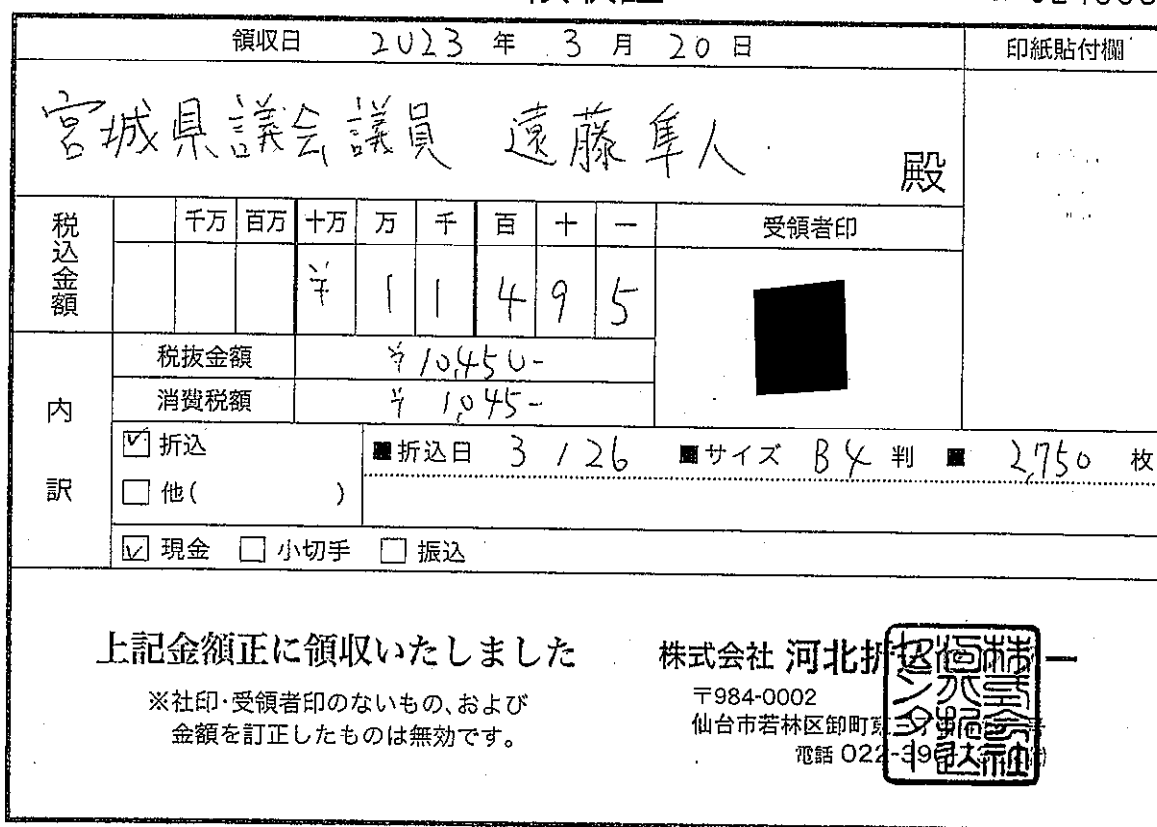 領収日 2023 年 3 月 20 日 印紙貼付欄
宮城県議会議員 遠藤隼人 殿
税込金額 千万 百万 十万 万 千 百 十 一 受領者印
¥ 1 1 4 9 5
内訳
税抜金額 ¥10,450-
消費税額 ¥1,045-
☑ 折込 ■折込日 3 / 26 ■サイズ B4 判 ■ 2,750 枚
□ 他( )
☑ 現金 □ 小切手 □ 振込
上記金額正に領収いたしました
※社印・受領者印のないもの、および
金額を訂正したものは無効です。
株式会社 河北折込センター
〒984-0002
仙台市若林区卸町東三
電話 022-39
株式会社河北折込センター